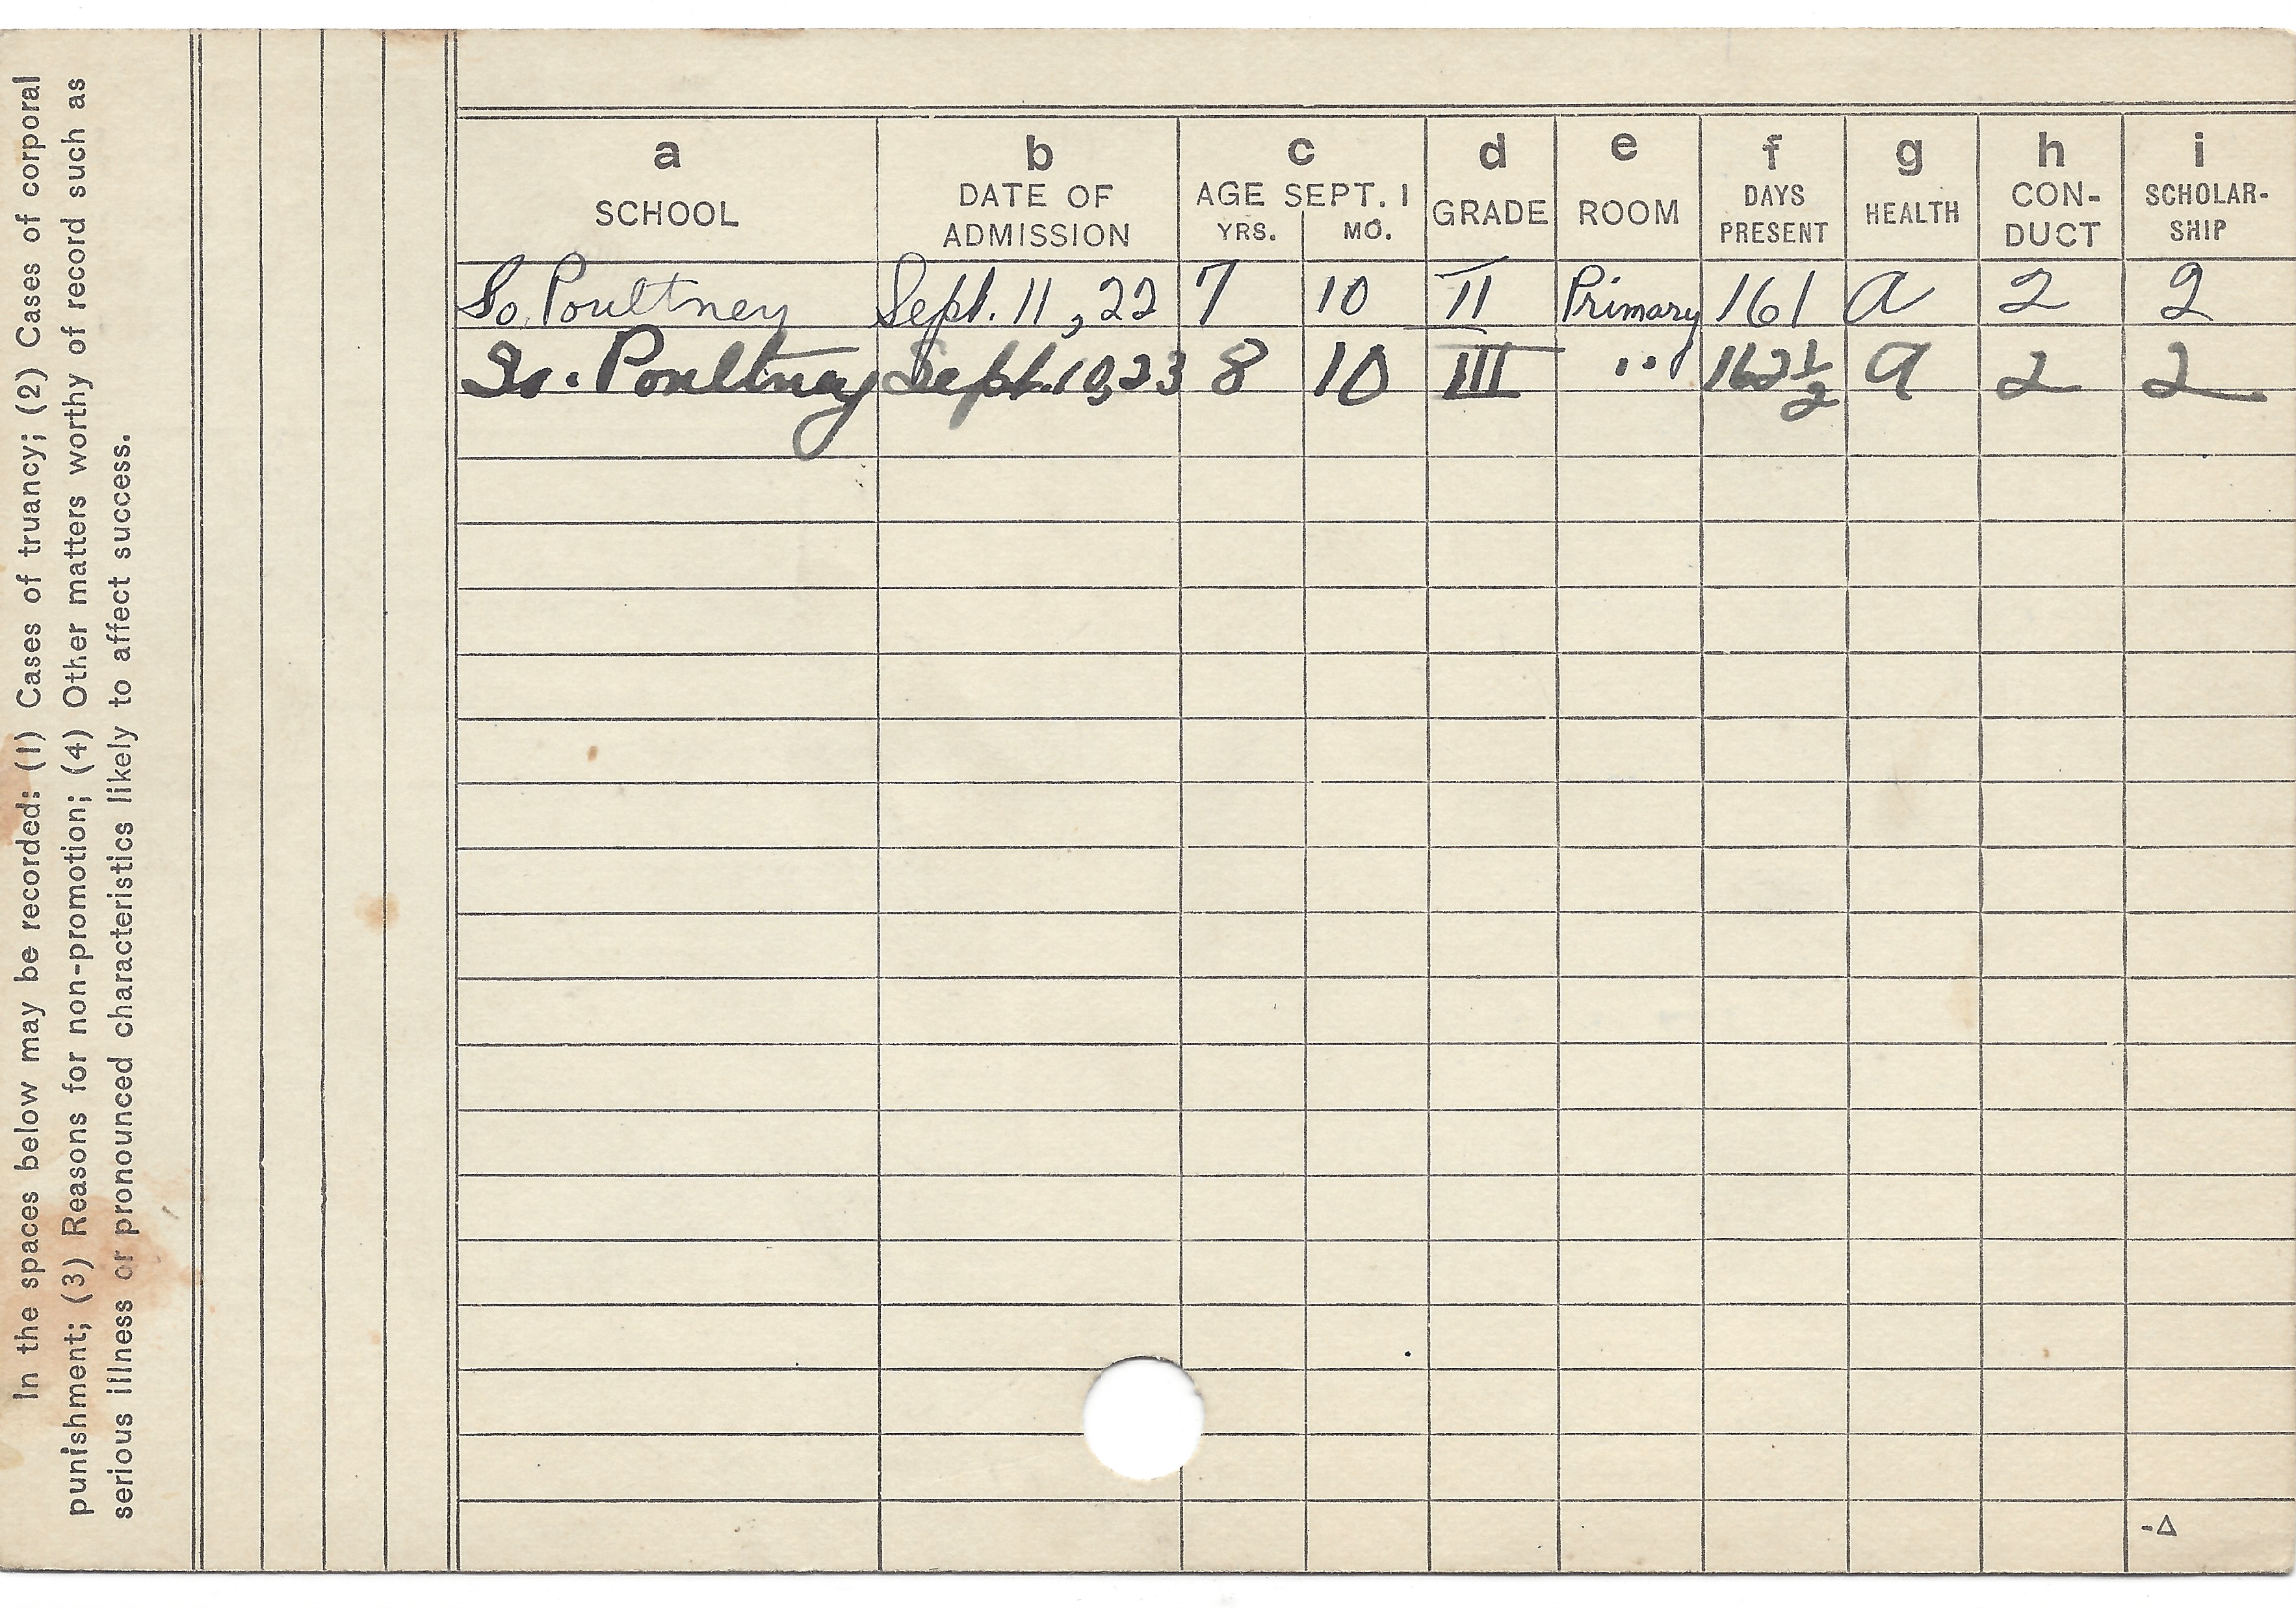 In the spaces below may be recorded: (1) Cases of truancy; (2) Cases of corporal
punishment; (3) Reasons for non-promotion; (4) Other matters worthy of record such as
serious illness or pronounced characteristics likely to affect success.
a b c d e f g h i
SCHOOL DATE OF ADMISSION AGE SEPT. 1 YRS. MO. GRADE ROOM DAYS PRESENT HEALTH CON-DUCT SCHOLAR-SHIP
So. Poultney Sept. 11, 22 7 10 II Primary 161 a 2 2
So. Poultney Sept. 10, 23 8 10 III " 162 1/2 a 2 2
-Δ